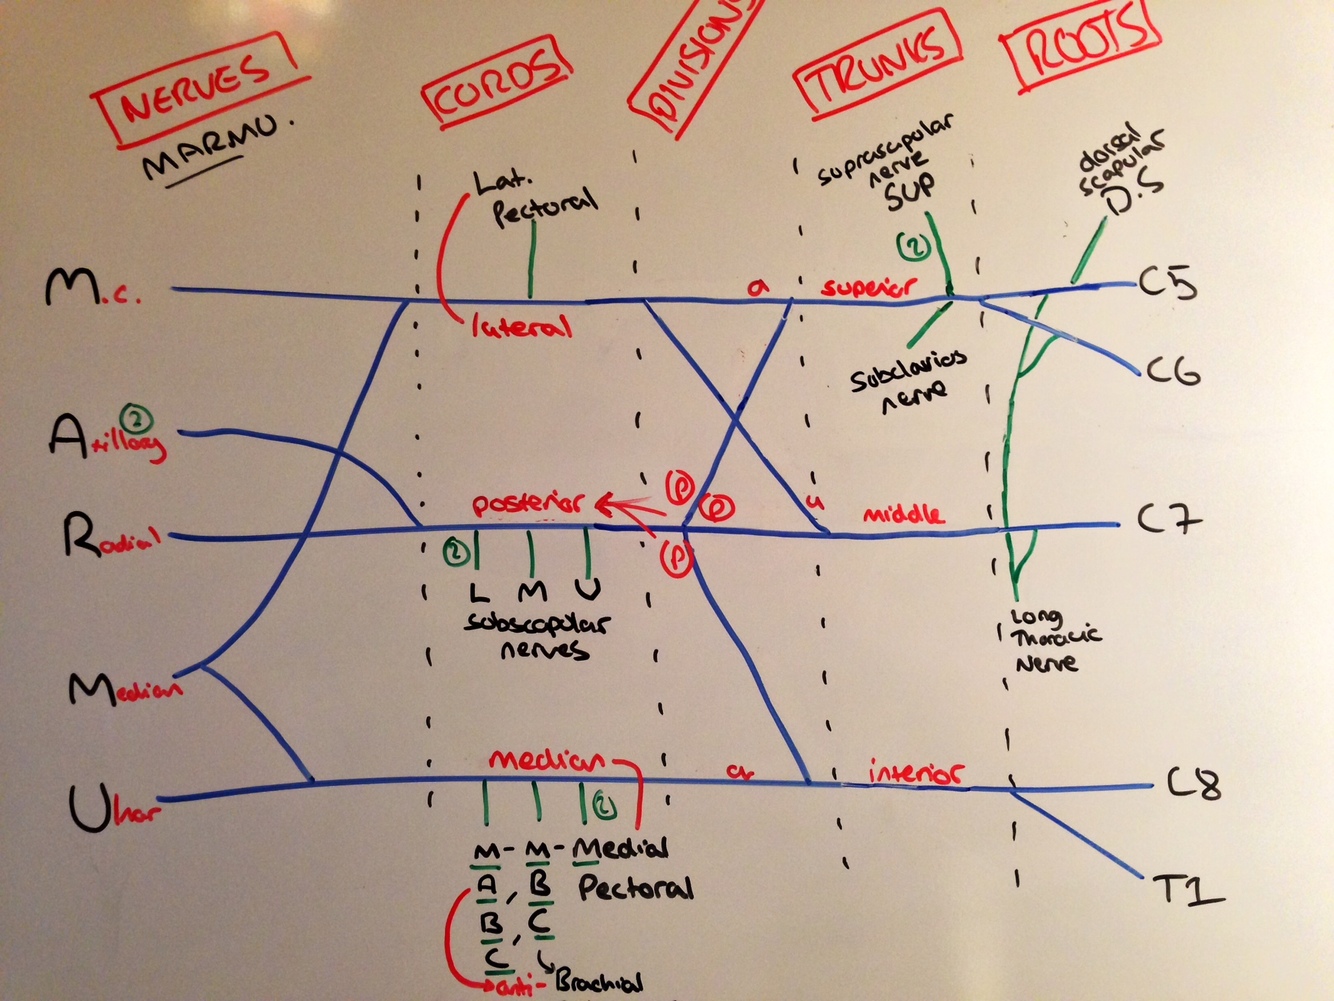 NERVES
MARMU.
CORDS
DIVISIONS
TRUNKS
ROOTS
Lat.
Pectoral
suprascapular
nerve
SUP
dorsal
scapular
D.S
2
M.c.
a
superior
C5
lateral
Subclavius
nerve
C6
2
Axillary
posterior
P
P
a
middle
C7
Radial
2
P
L M U
subscapular
nerves
Long
Thoracic
Nerve
Median
median
a
inferior
C8
Ulnar
2
M - M - Medial
A, B Pectoral
B, C
C
anti- Brachial
T1